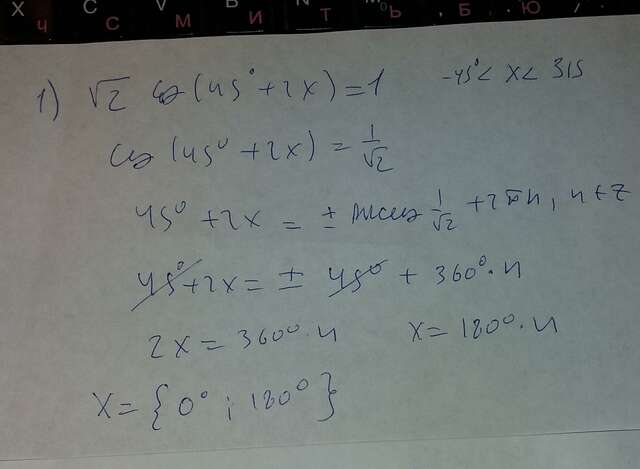 Х С V В N M
Ч С М И Т Ь , Б . Ю /
1) √2 cos (45° + 2x) = 1 -45° < x < 315
cos (45° + 2x) = 1/√2
45° + 2x = ± arccos 1/√2 + 2πn, n ∈ Z
45° + 2x = ± 45° + 360° · n
2x = 360° · n x = 180° · n
x = {0° ; 180°}